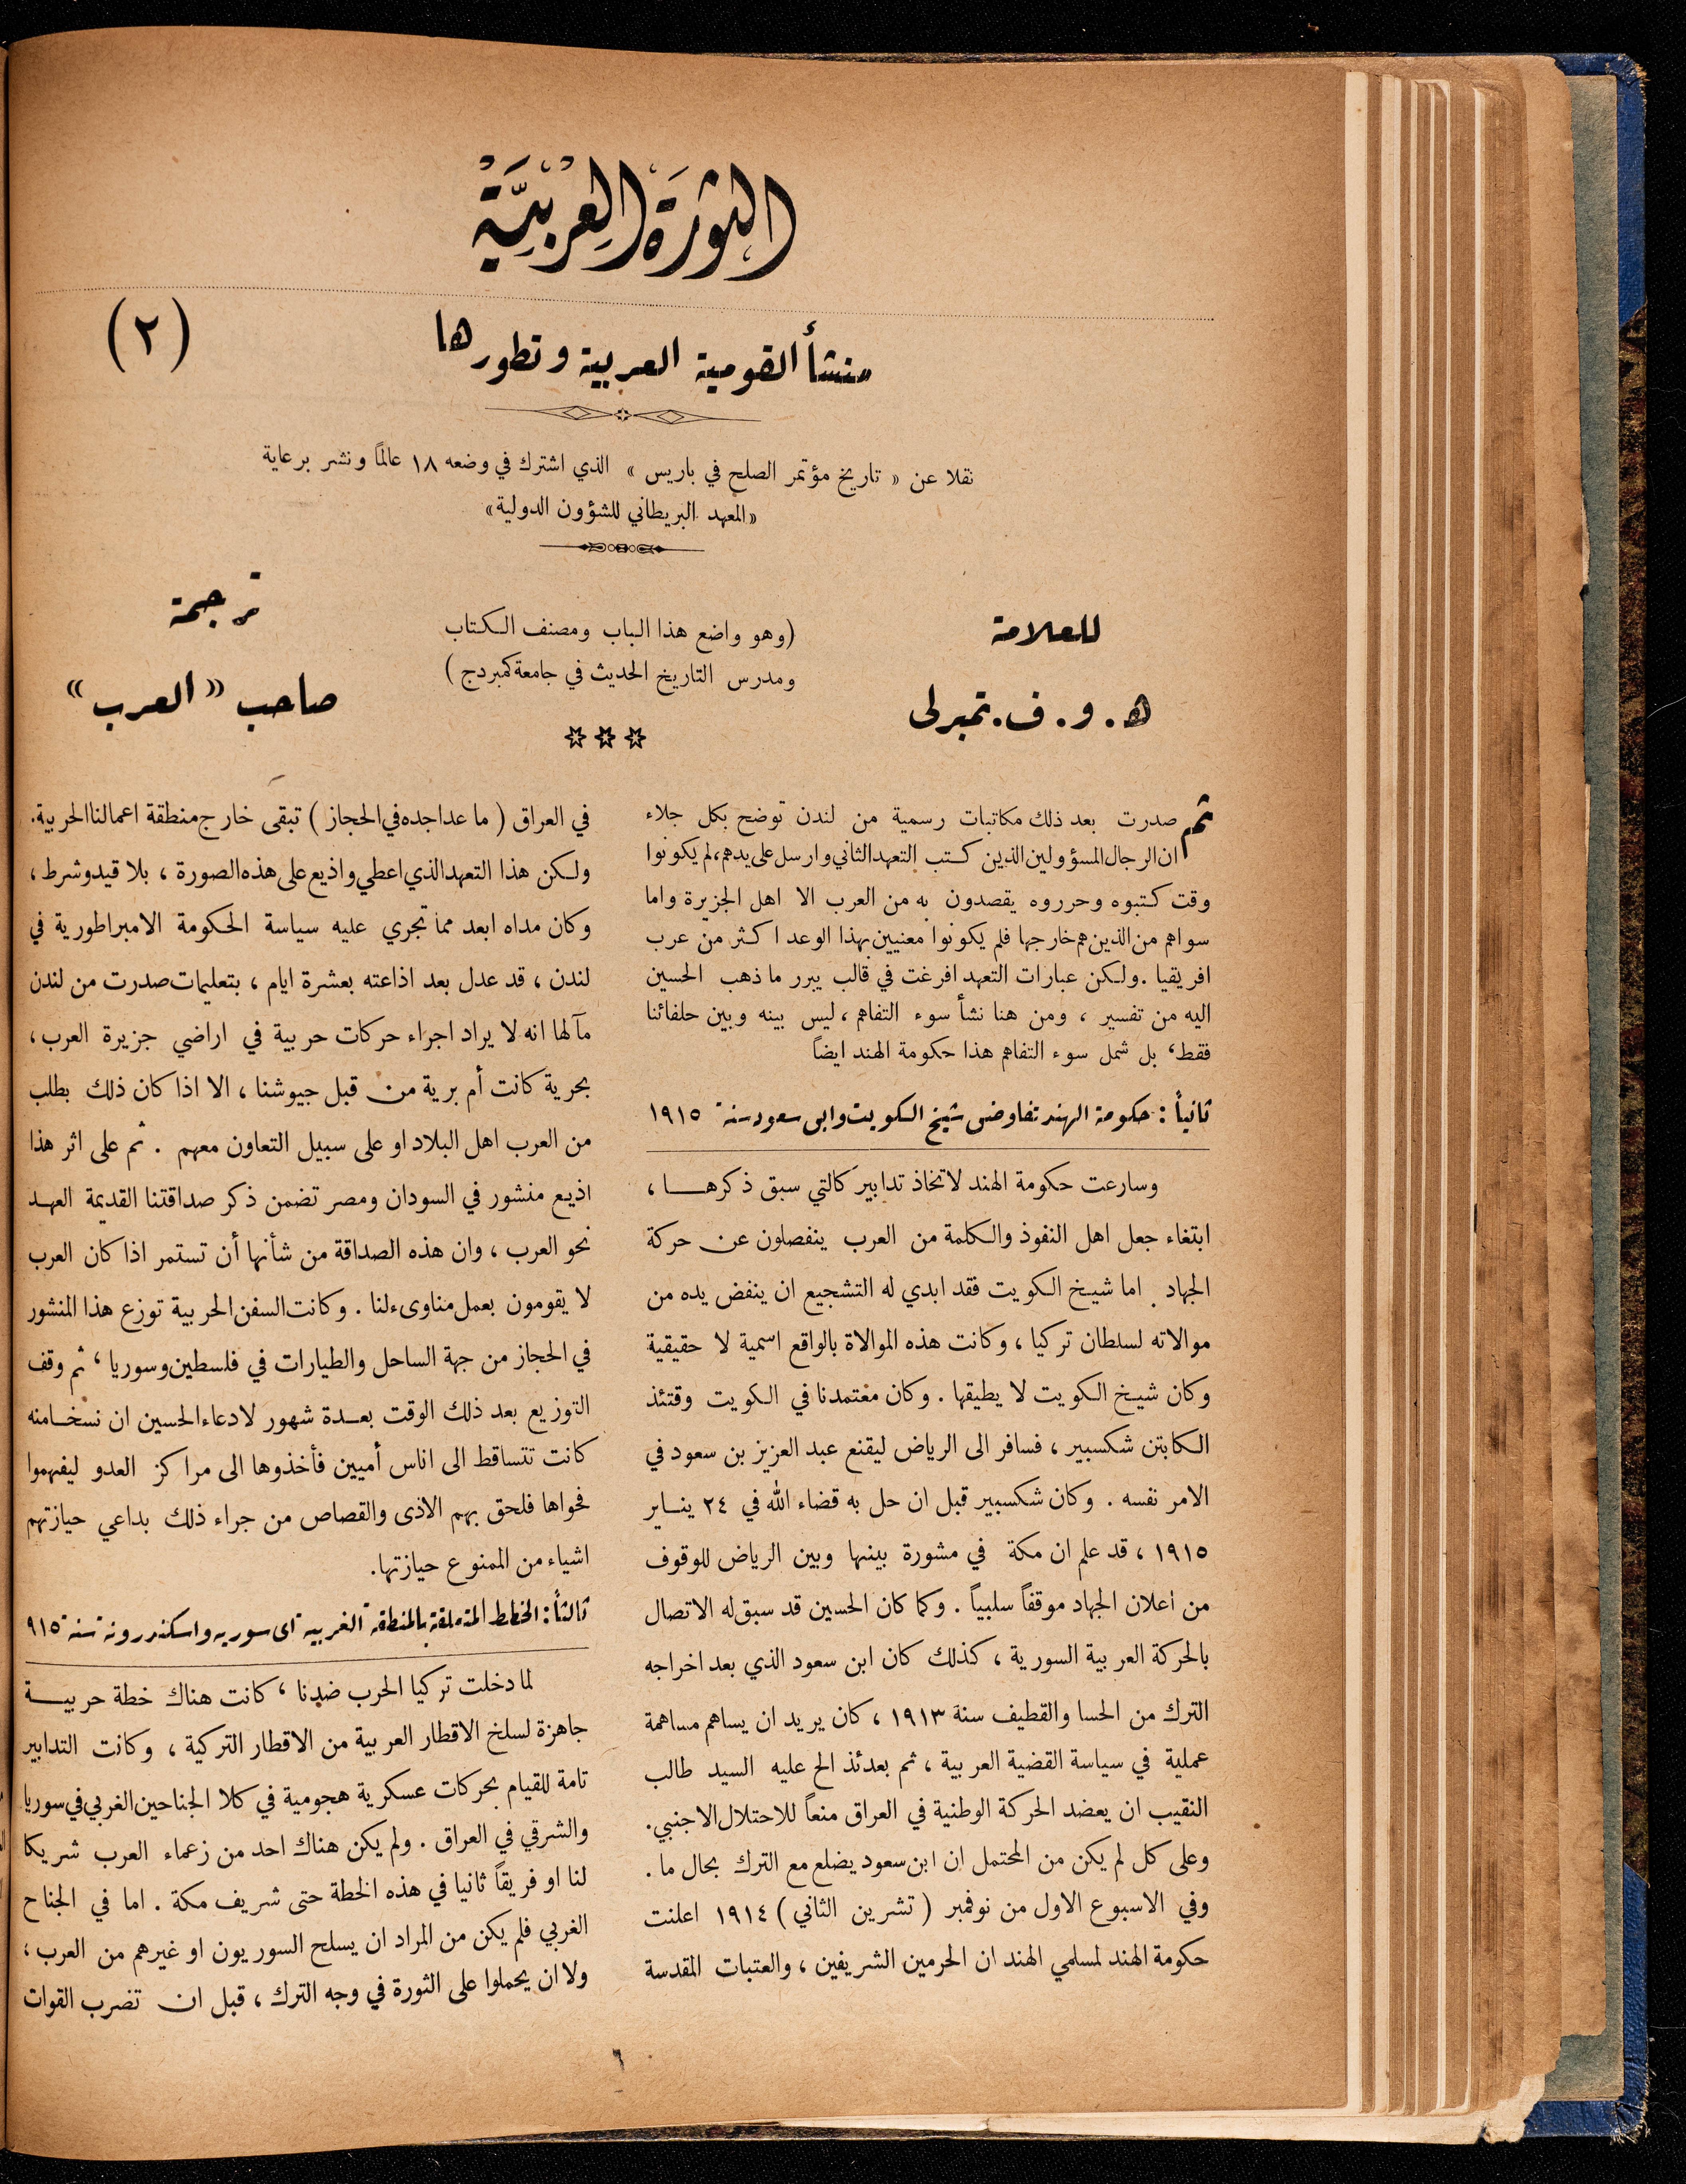 الثورة العربية
(٢)
منشأ القومية العربية وتطورها
نقلا عن « تاريخ مؤتمر الصلح في باريس » الذي اشترك في وضعه ١٨ عالماً ونشر برعاية
«المعهد البريطاني للشؤون الدولية»
للعلامة
ه . و . ف . تمبرلى
(وهو واضع هذا الباب ومصنف الكتاب
ومدرس التاريخ الحديث في جامعة كمبردج )
ترجمة
صاحب « العرب »
ثم صدرت بعد ذلك مكاتبات رسمية من لندن توضح بكل جلاء
ان الرجال المسؤولين الذين كتب التعهد الثاني وارسل على يدهم، لم يكونوا
وقت كتبوه وحرروه يقصدون به من العرب الا اهل الجزيرة واما
سواهم من الذين هم خارجها فلم يكونوا معنيين بهذا الوعد اكثر من عرب
افريقيا . ولكن عبارات التعهد افرغت في قالب يبرر ما ذهب الحسين
اليه من تفسير ، ومن هنا نشأ سوء التفاهم ، ليس بينه وبين حلفائنا
فقط، بل شمل سوء التفاهم هذا حكومة الهند ايضاً
ثانياً : حكومة الهند تفاوض شيخ الكويت وابن سعود سنة ١٩١٥
وسارعت حكومة الهند لاتخاذ تدابير كالتي سبق ذكرهـا ،
ابتغاء جعل اهل النفوذ والكلمة من العرب ينفصلون عن حركة
الجهاد . اما شيخ الكويت فقد ابدي له التشجيع ان ينفض يده من
موالاته لسلطان تركيا ، وكانت هذه الموالاة بالواقع اسمية لا حقيقية
وكان شيخ الكويت لا يطيقها . وكان معتمدنا في الكويت وقتئذ
الكابتن شكسبير ، فسافر الى الرياض ليقنع عبد العزيز بن سعود في
الامر نفسه . وكان شكسبير قبل ان حل به قضاء الله في ٢٤ ينـاير
١٩١٥ ، قد علم ان مكة في مشورة بينها وبين الرياض للوقوف
من اعلان الجهاد موقفاً سلبياً . وكما كان الحسين قد سبق له الاتصال
بالحركة العربية السورية ، كذلك كان ابن سعود الذي بعد اخراجه
الترك من الحسا والقطيف سنة ١٩١٣ ، كان يريد ان يساهم مساهمة
عملية في سياسة القضية العربية ، ثم بعدئذ الح عليه السيد طالب
النقيب ان يعضد الحركة الوطنية في العراق منعاً للاحتلال الاجنبي.
وعلى كل لم يكن من المحتمل ان ابن سعود يضلع مع الترك بحال ما .
وفي الاسبوع الاول من نوفمبر ( تشرين الثاني ) ١٩١٤ اعلنت
حكومة الهند لمسلمي الهند ان الحرمين الشريفين ، والعتبات المقدسة
في العراق ( ما عدا جده في الحجاز ) تبقى خارج منطقة اعمالنا الحربية.
ولكن هذا التعهد الذي اعطي واذيع على هذه الصورة ، بلا قيد وشرط ،
وكان مداه ابعد مما تجري عليه سياسة الحكومة الامبراطورية في
لندن ، قد عدل بعد اذاعته بعشرة ايام ، بتعليمات صدرت من لندن
مآلها انه لا يراد اجراء حركات حربية في اراضي جزيرة العرب ،
بحرية كانت أم برية من قبل جيوشنا ، الا اذا كان ذلك بطلب
من العرب اهل البلاد او على سبيل التعاون معهم . ثم على اثر هذا
اذيع منشور في السودان ومصر تضمن ذكر صداقتنا القديمة العهد
نحو العرب ، وان هذه الصداقة من شأنها أن تستمر اذا كان العرب
لا يقومون بعمل مناوىء لنا . وكانت السفن الحربية توزع هذا المنشور
في الحجاز من جهة الساحل والطيارات في فلسطين وسوريا ، ثم وقف
التوزيع بعد ذلك الوقت بعـدة شهور لادعاء الحسين ان نسخـامنه
كانت تتساقط الى اناس أميين فأخذوها الى مراكز العدو ليفهموا
فحواها فلحق بهم الاذى والقصاص من جراء ذلك بداعي حيازتهم
اشياء من الممنوع حيازتها.
ثالثاً : الخطط المتعلقة بالمنطقة الغربية اى سورية واسكندرونة سنة ٩١٥
لما دخلت تركيا الحرب ضدنا ، كانت هناك خطة حربيـة
جاهزة لسلخ الاقطار العربية من الاقطار التركية ، وكانت التدابير
تامة للقيام بحركات عسكرية هجومية في كلا الجناحين الغربي في سوريا
والشرقي في العراق . ولم يكن هناك احد من زعماء العرب شريكا
لنا او فريقاً ثانيا في هذه الخطة حتى شريف مكة . اما في الجناح
الغربي فلم يكن من المراد ان يسلح السوريون او غيرهم من العرب ،
ولا ان يحملوا على الثورة في وجه الترك ، قبل ان تضرب القوات
٦